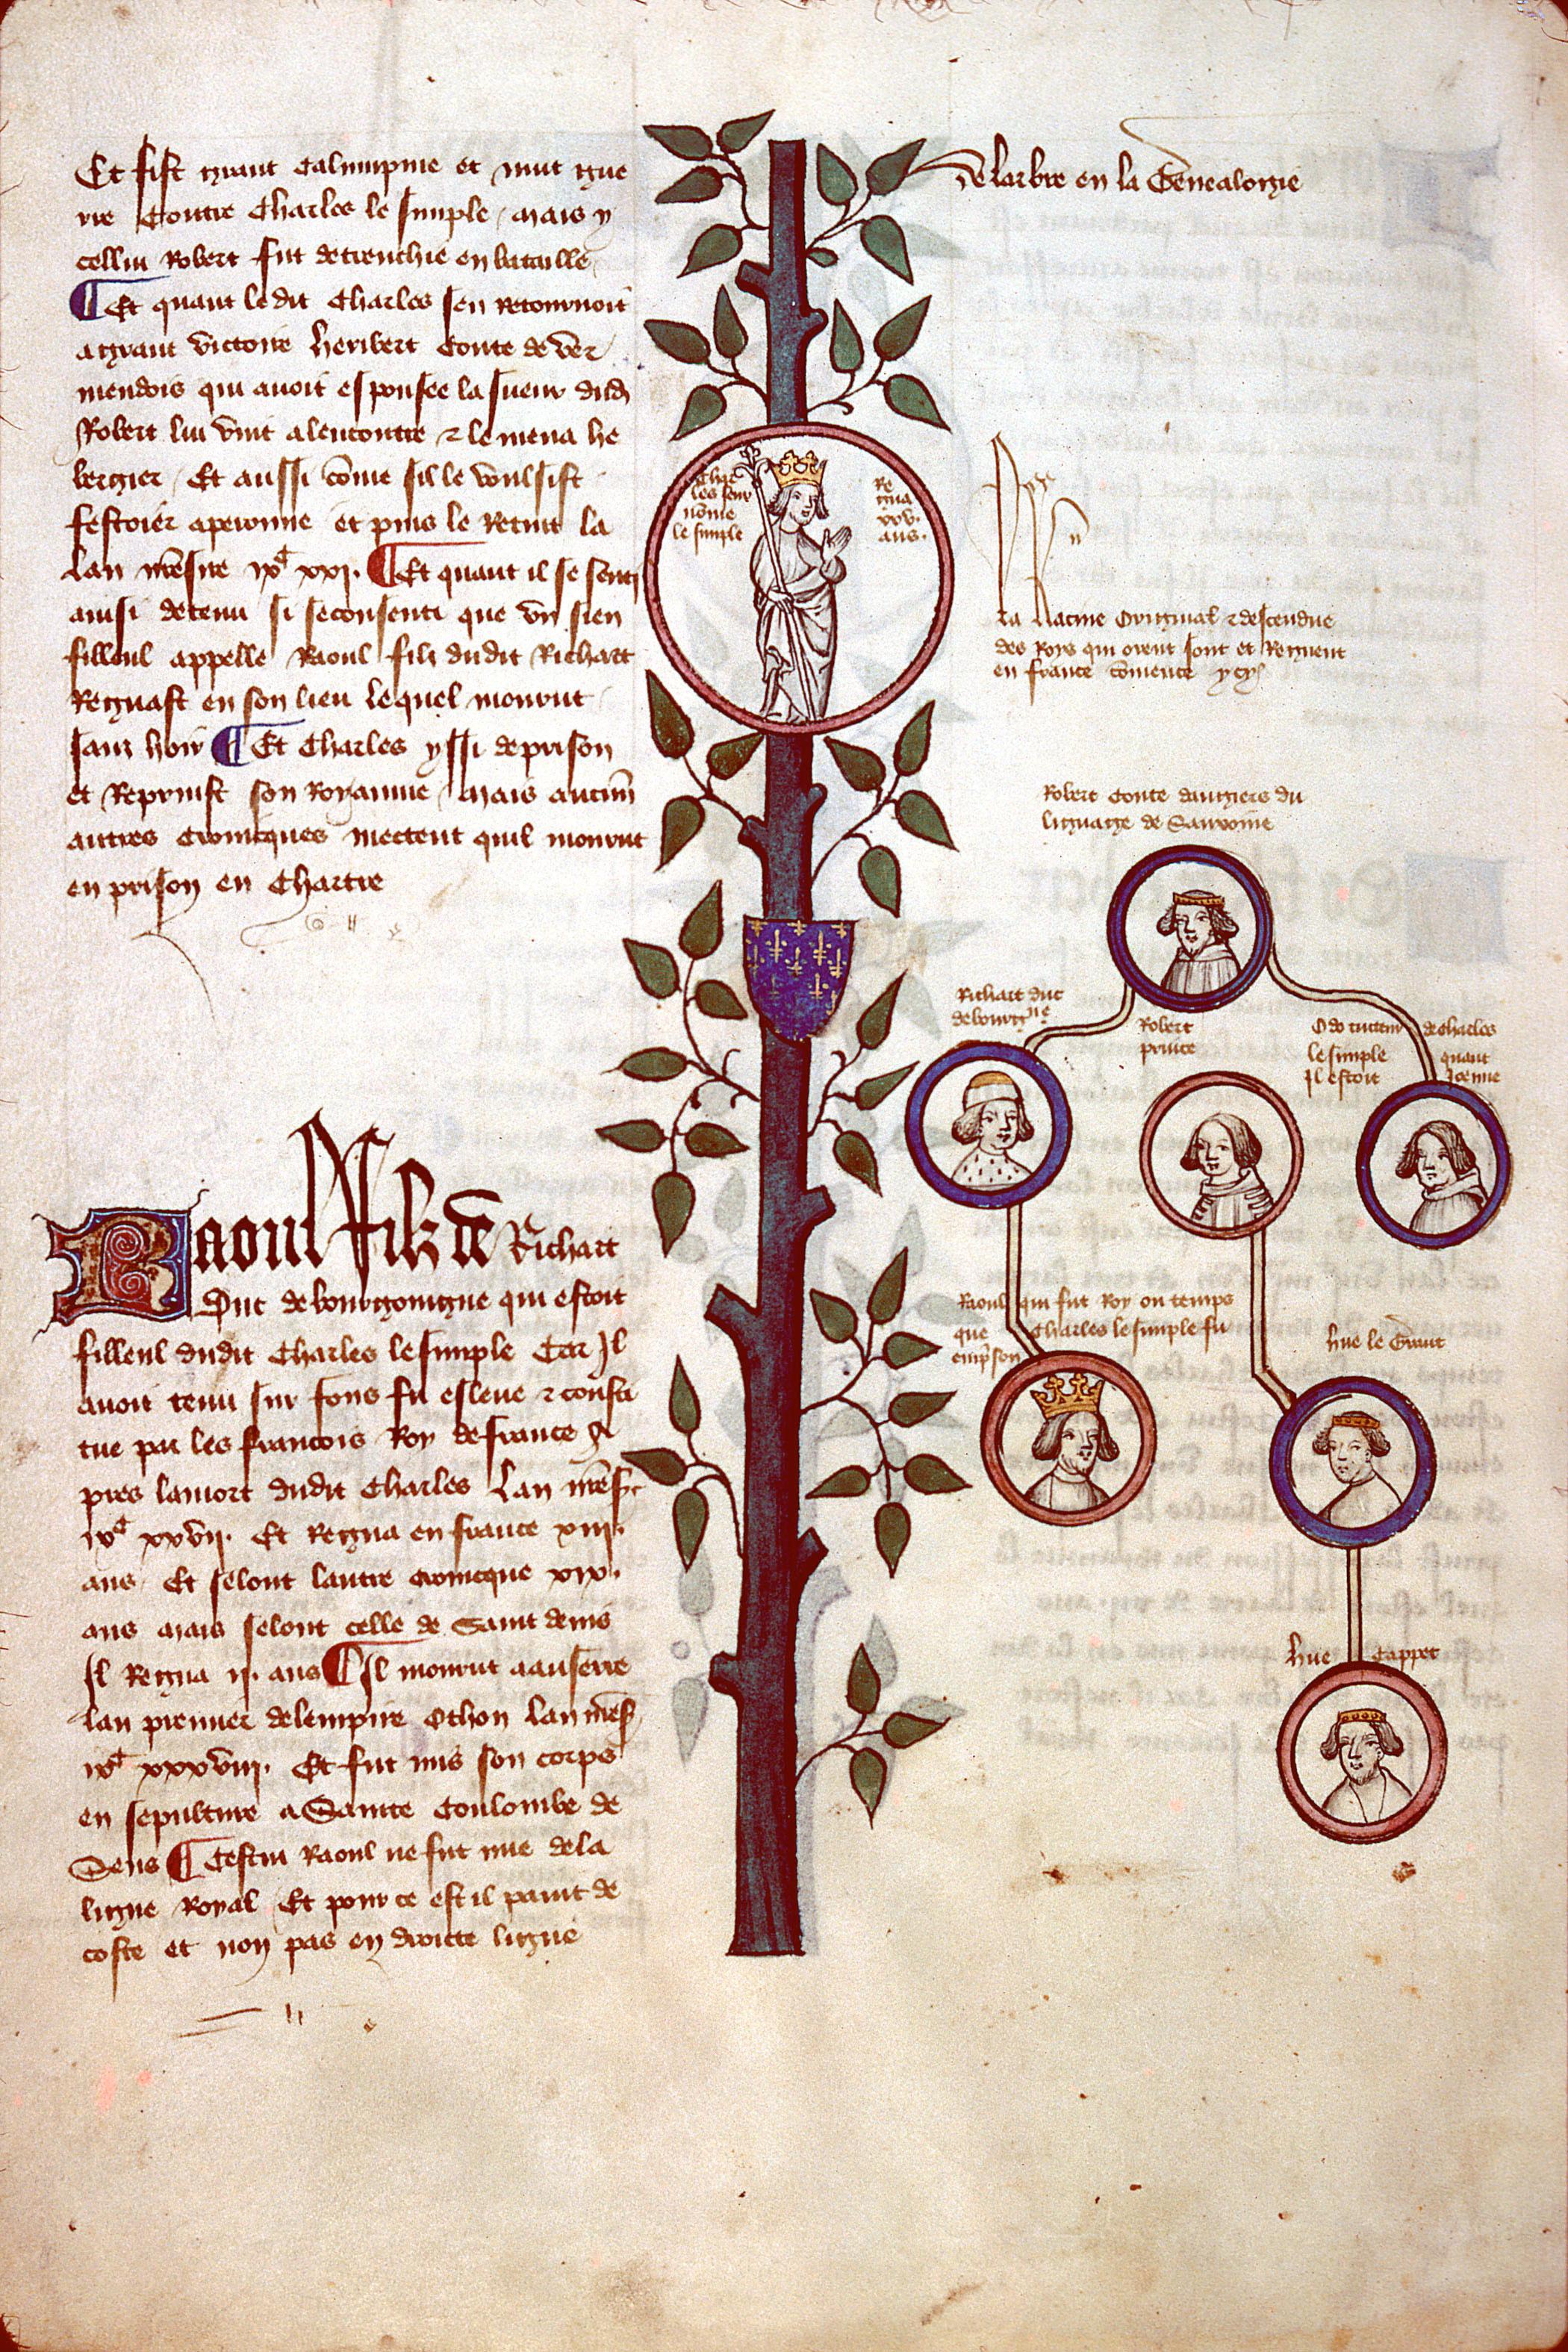 Et fist grant calumpnie et mut gue
rre contre Charles le simple mais y
cellui Robert fut detrenchie en bataille
Et quant ledit Charles sen retournoit
a grant victoire heribert conte de ver
mendois qui avoit espousee la sueur dud
Robert lui vint alencontre & le mena he
bergier Et aussi cōme sil le voulsist
festoier a peronne et puis le retint la
lan mēsme ixͨ xxi. Et quant il se senti
ainsi detenu si se consenti que un sien
filleul appelle Raoul filz dudit Richart
Regnast en son lieu lequel mourut
sans hoir Et Charles yssi de prison
et Reprinst son Royaume mais aucūs
autres cronicques mectent quil mourut
en prison en chartre
Raoul filz de Richart
Duc de bourgoingne qui estoit
filleul dudit Charles le simple Car il
avoit tenu sur fons fu esleve & consti
tue par les francois Roy de france a
pres la mort dudit Charles Lan mēs
ixͨ xxvii. Et Regna en france xiii.
ans Et selont lautre cronicque xix.
ans mais selont celle de Saint denis
Il Regna ii. ans Il mourut a auserre
lan premier de lempire Othon lan mēs
ixͨ xxxviii. Et fut mis son corps
en sepulture a Sainte Coulombe de
Sens Cestui Raoul ne fut mie de la
ligne Royal Et pour ce est il paint de
coste et non pas en droicte ligne
Char
les seur
nōme
le simple
Re
gna
xxv.
ans.
De larbre en la Genealogie
La Racine Original & descendue
des Roys qui orent sont et Regnent
en france cōmence ycy
Robert Conte dangiers du
lignage de Saxoine
Richart duc
de bourgne
Robert
prince
Odo tuteur de charles
le simple quant
Il estoit Jeune
Raoul qui fut Roy ou temps
que Charles le simple fu
emp̄son
hue le Grant
hue Cappet